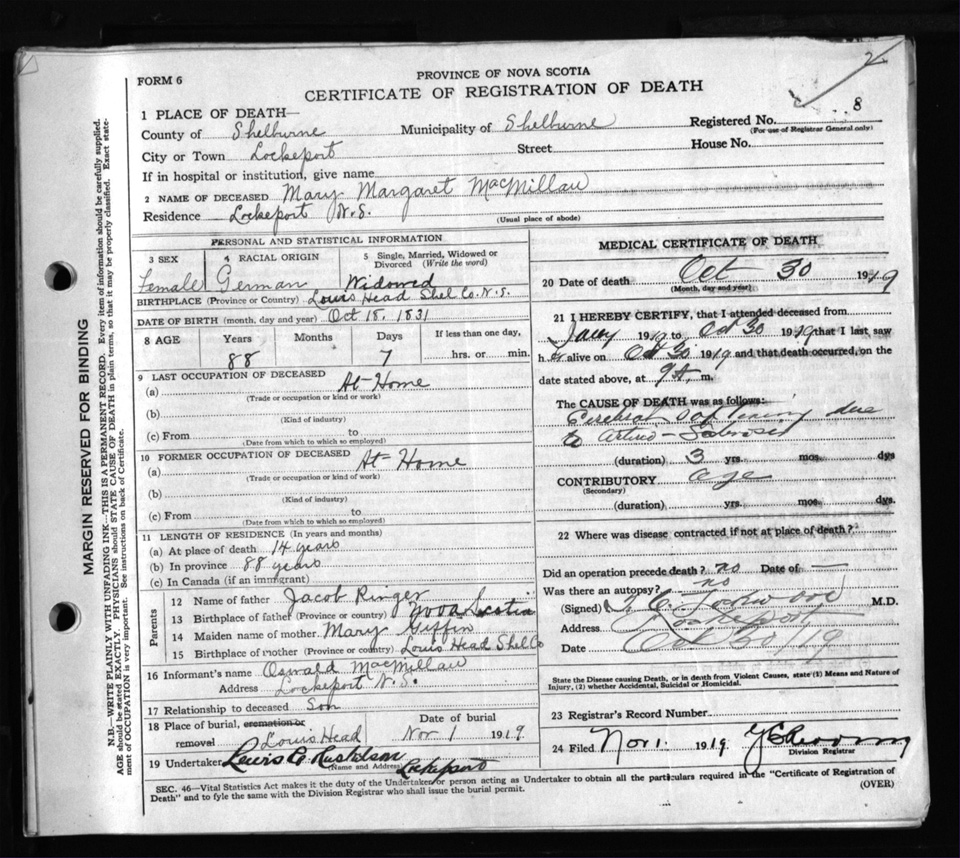 2
FORM 6
PROVINCE OF NOVA SCOTIA
CERTIFICATE OF REGISTRATION OF DEATH
1 PLACE OF DEATH—
Registered No. 8
(For use of Registrar General only)
County of Shelburne Municipality of Shelburne
City or Town Lockeport Street House No.
If in hospital or institution, give name
2 NAME OF DECEASED Mary Margaret MacMillan
Residence Lockeport N.S.
(Usual place of abode)
PERSONAL AND STATISTICAL INFORMATION
3 SEX 4 RACIAL ORIGIN 5 Single, Married, Widowed or Divorced (Write the word)
Female German Widowed
BIRTHPLACE (Province or Country) Louis Head Shel Co. N.S.
DATE OF BIRTH (month, day and year) Oct 18, 1831
8 AGE Years Months Days If less than one day,
88 7 hrs. or min.
9 LAST OCCUPATION OF DECEASED
(a) At Home
(Trade or occupation or kind or work)
(b)
(Kind of industry)
(c) From to
(Date from which to which so employed)
10 FORMER OCCUPATION OF DECEASED
(a) At Home
(Trade or occupation or kind of work)
(b)
(Kind of industry)
(c) From to
(Date from which to which so employed)
11 LENGTH OF RESIDENCE (In years and months)
(a) At place of death 14 years
(b) In province 88 years
(c) In Canada (if an immigrant)
Parents
12 Name of father Jacob Ringer
13 Birthplace of father (Province or country) Nova Scotia
14 Maiden name of mother Mary Giffin
15 Birthplace of mother (Province or country) Louis Head Shel Co
16 Informant's name Oswald MacMillan
Address Lockeport N.S.
17 Relationship to deceased Son
18 Place of burial, cremation or removal Louis Head Date of burial Nov 1 1919
19 Undertaker Lewis
(Name and Address) Lockeport
MEDICAL CERTIFICATE OF DEATH
20 Date of death Oct 30 1919
(Month, day and year)
21 I HEREBY CERTIFY, that I attended deceased from
Jany 1919 to Oct 30 1919 that I last saw
h alive on Oct 30 1919 and that death occurred, on the
date stated above, at 9 A. m.
The CAUSE OF DEATH was as follows:
Cerebral softening due
to Arterio-Sclerosis
(duration) 3 yrs. mos. dys
CONTRIBUTORY age
(Secondary)
(duration) yrs. mos. dys.
22 Where was disease contracted if not at place of death?
Did an operation precede death? no Date of —
Was there an autopsy? no
(Signed) M.D.
Address Lockeport
Date Oct 30/19
State the Disease causing Death, or in death from Violent Causes, state (1) Means and Nature of
Injury, (2) whether Accidental, Suicidal or Homicidal.
23 Registrar's Record Number
24 Filed Nov 1. 1919.
Division Registrar
SEC. 46—Vital Statistics Act makes it the duty of the Undertaker or person acting as Undertaker to obtain all the particulars required in the "Certificate of Registration of
Death" and to fyle the same with the Division Registrar who shall issue the burial permit.
(OVER)
MARGIN RESERVED FOR BINDING
N.B.—WRITE PLAINLY WITH UNFADING INK—THIS IS A PERMANENT RECORD. Every item of information should be carefully supplied.
AGE should be stated EXACTLY. PHYSICIANS should STATE CAUSE OF DEATH in plain terms, so that it may be properly classified. Exact state-
ment of OCCUPATION is very important. See instructions on back of Certificate.